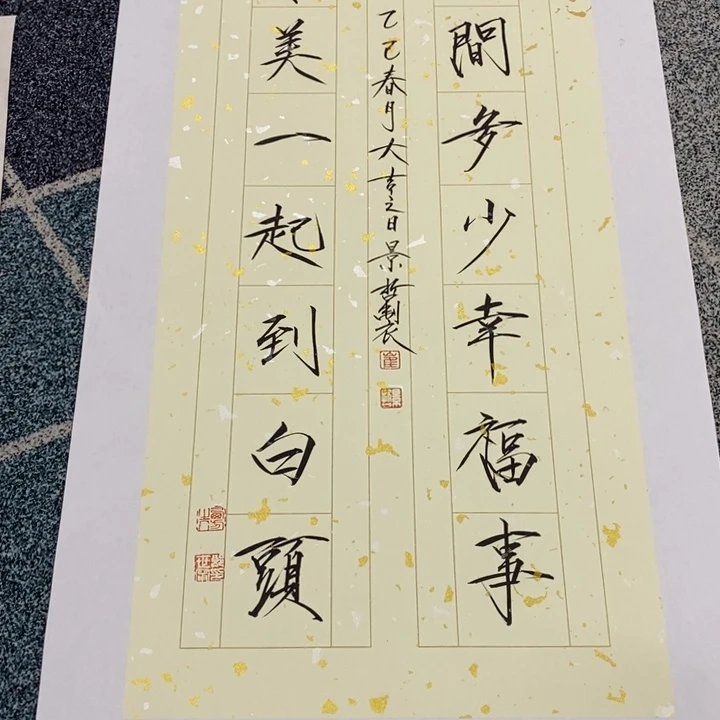 間多少幸福事
乙巳春月大吉之日景哲製
崔
美一起到白頭